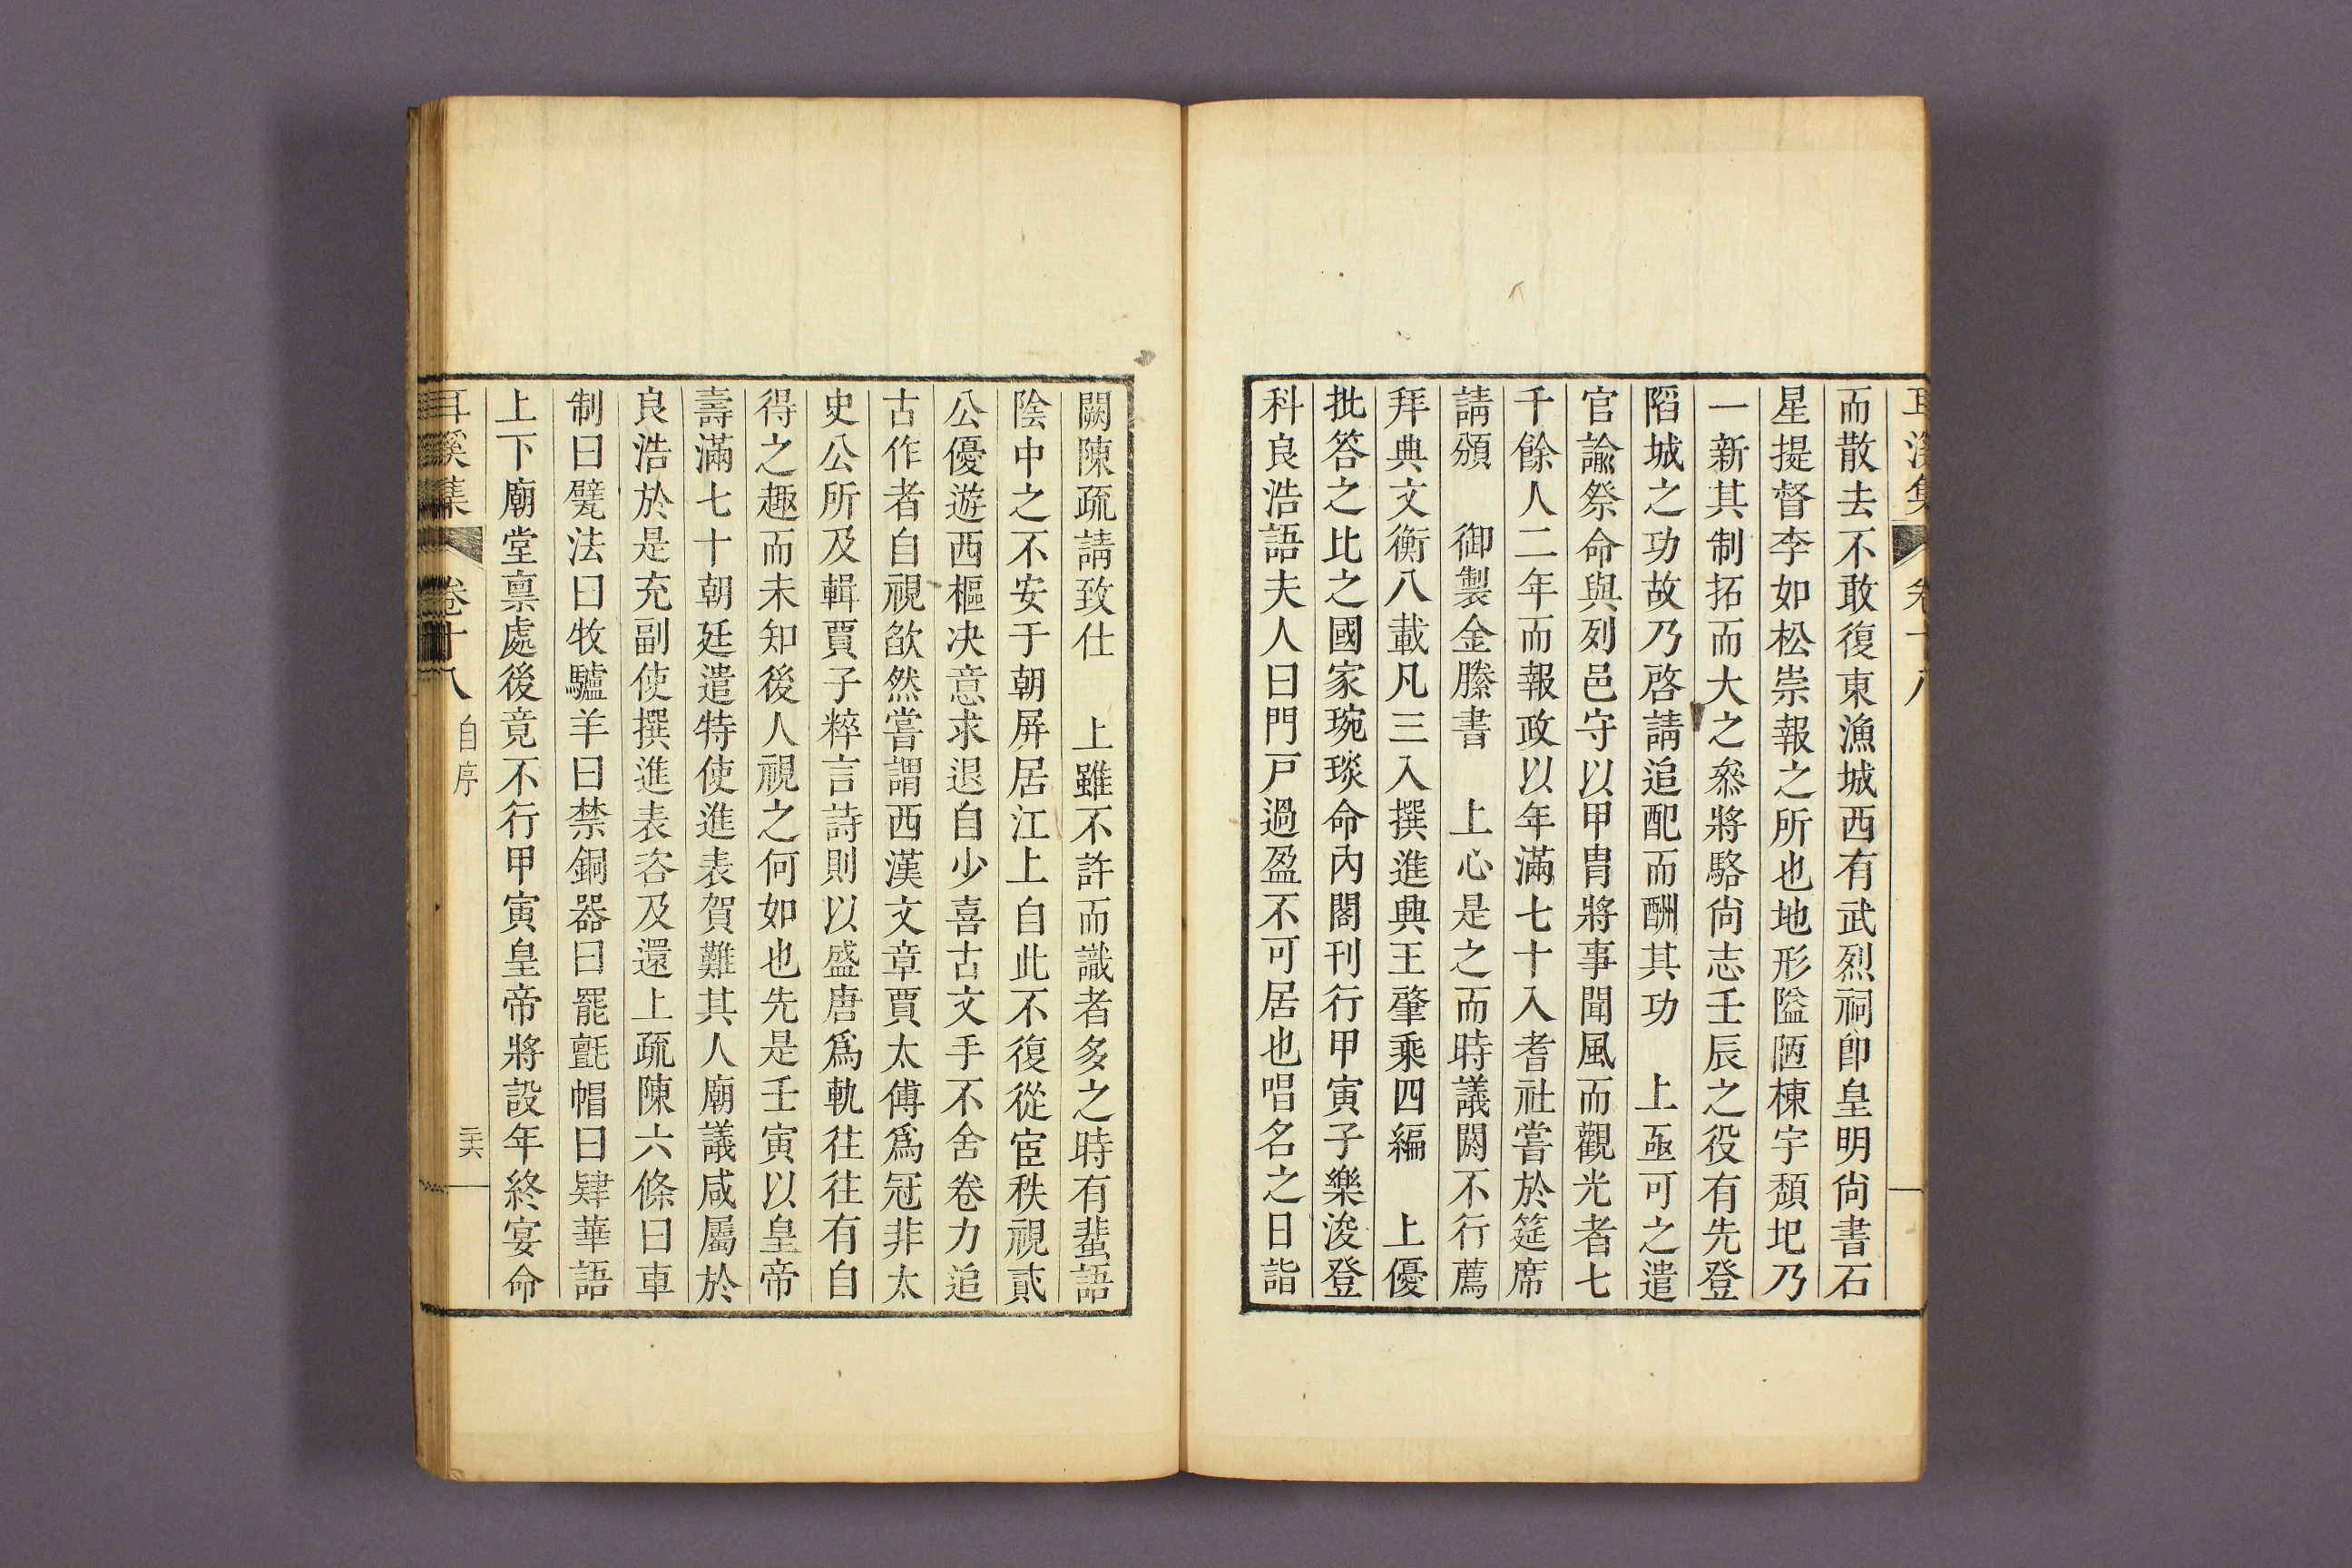 耳溪集 卷十八
而散去不敢復東漁城西有武烈祠卽皇明尙書石
星提督李如松祟報之所也地形隘陋棟宇頹圯乃
一新其制拓而大之叅將駱尙志壬辰之役有先登
陷城之功故乃啓請追配而酬其功 上亟可之遣
官諭祭命與列邑守以甲冑將事聞風而觀光者七
千餘人二年而報政以年滿七十入耆社嘗於筵席
請頒 御製金縢書 上心是之而時議閼不行薦
拜典文衡八載凡三入撰進興王肇乘四編 上優
批答之比之國家琬琰命內閣刊行甲寅子樂浚登
科良浩語夫人曰門戸過盈不可居也唱名之日詣
闕陳疏請致仕 上雖不許而識者多之時有蜚語
陰中之不安于朝屏居江上自此不復從宦秩視貳
公優遊西樞決意求退自少喜古文手不舍卷力追
古作者自視欿然嘗謂西漢文章賈太傅爲冠非太
史公所及輯賈子粹言詩則以盛唐爲軌往往有自
得之趣而未知後人視之何如也先是壬寅以皇帝
壽滿七十朝廷遣特使進表賀難其人廟議咸屬於
良浩於是充副使撰進表咨及還上疏陳六條曰車
制曰甓法曰牧驢羊曰禁銅器曰罷氈帽曰肄華語
上下廟堂禀處後竟不行甲寅皇帝將設年終宴命
耳溪集 卷十八 自序 二六